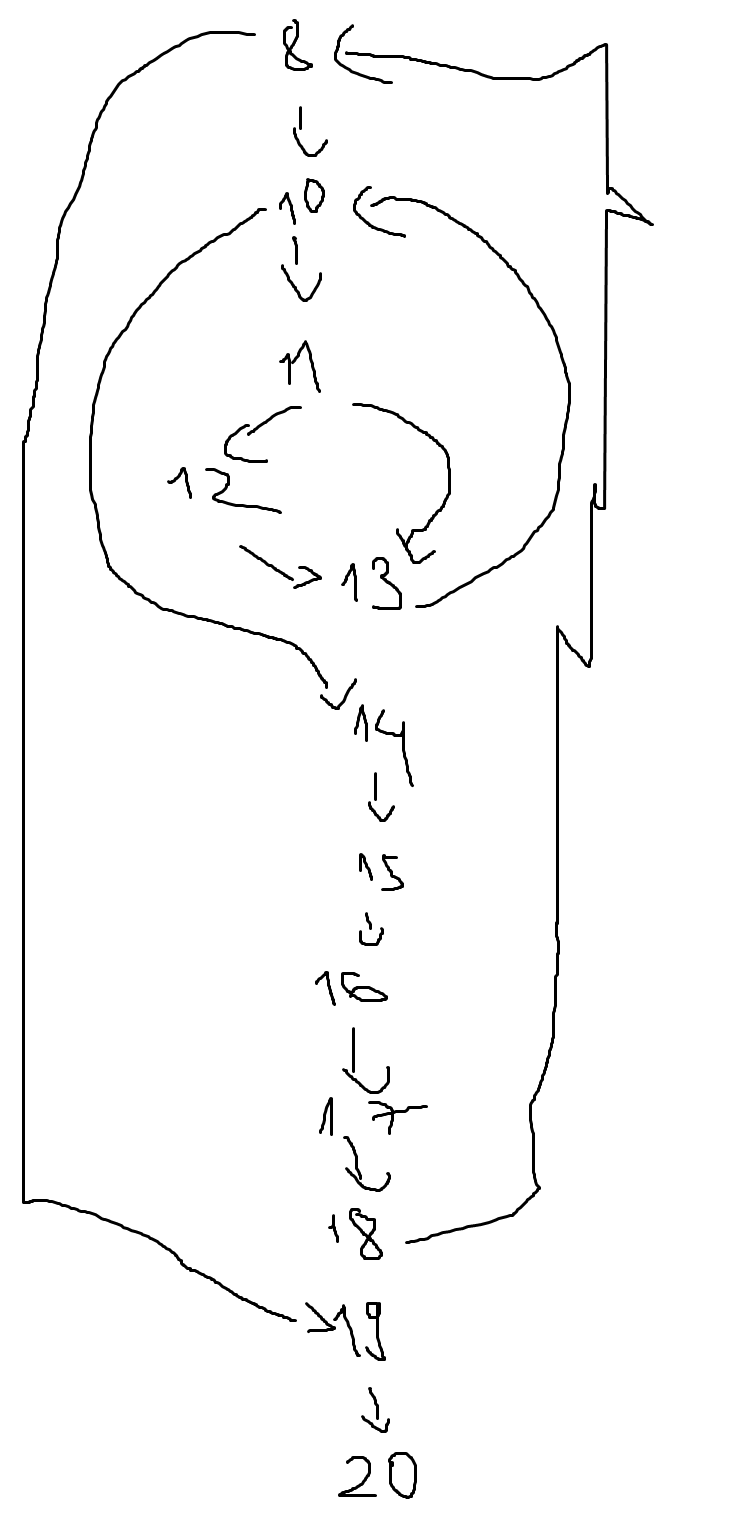 8
10
11
12
13
14
15
16
17
18
19
20